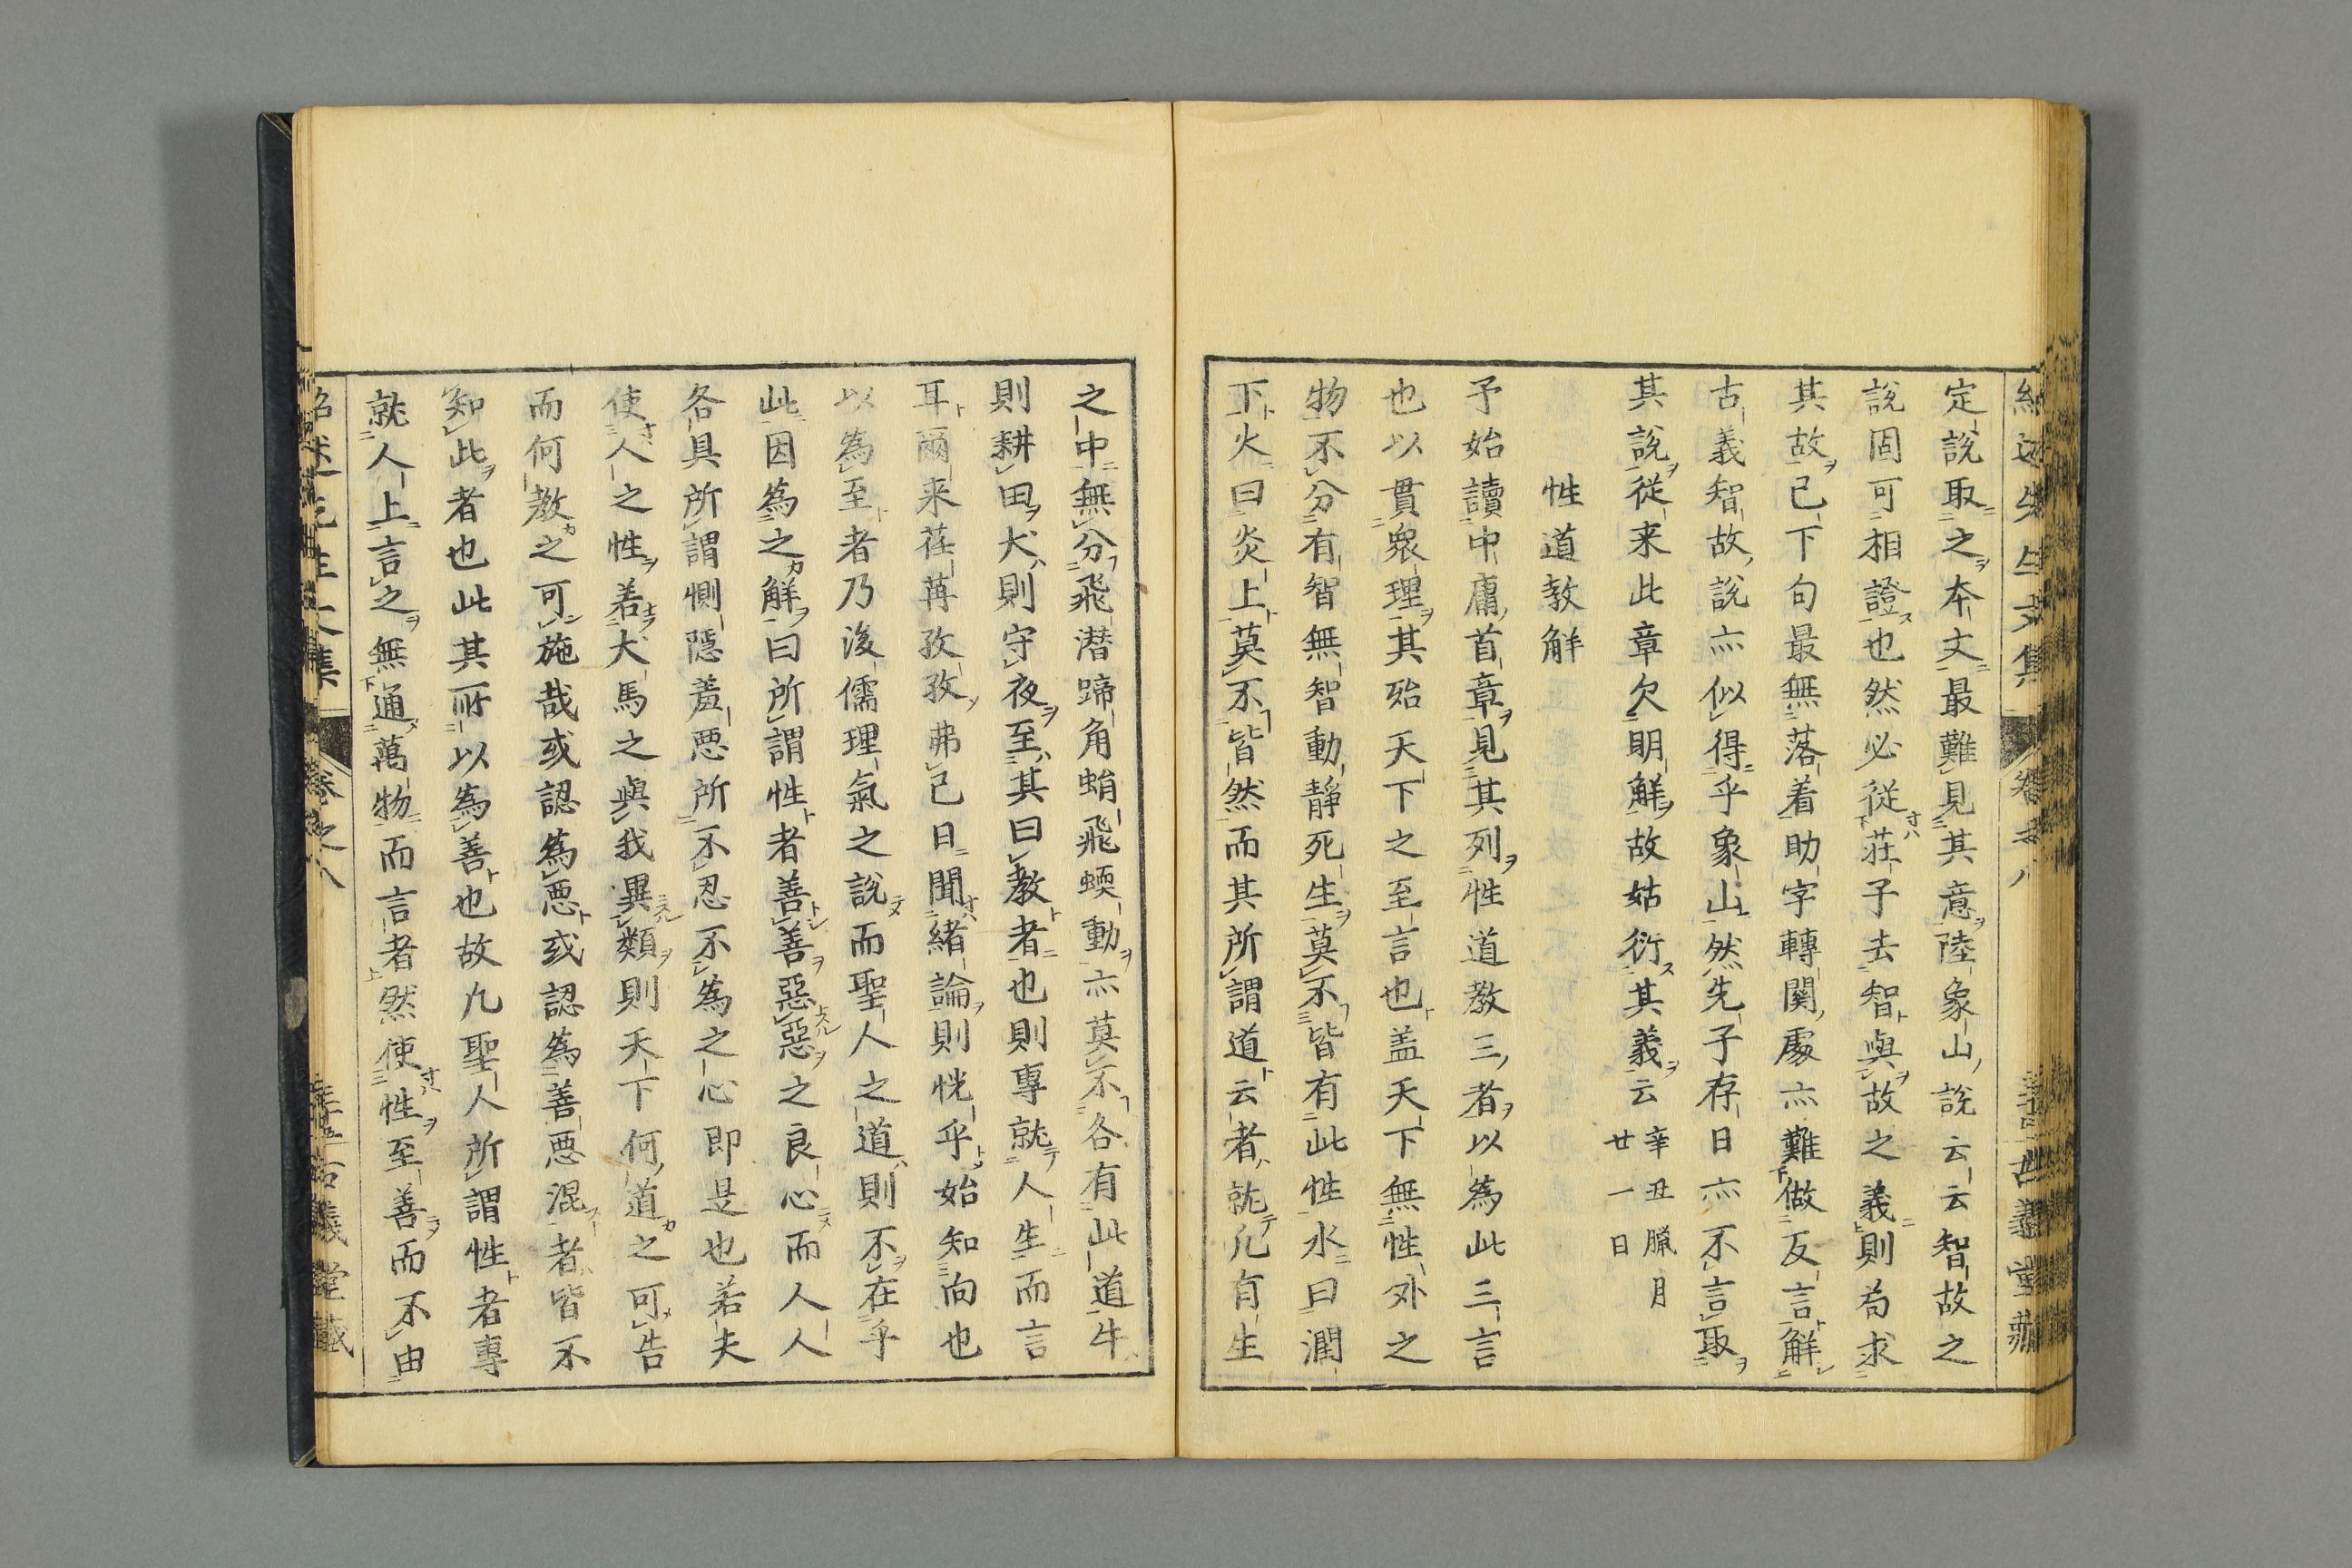 定說取之本文最難見其意陸象山說云云智故之
說固可相證也然必從莊子去智與故之義則苟求
其故已下句最無落着助字轉関處亦難做反言解
古義智故說亦似得乎象山然先子存日亦不言取
其說從来此章欠明解故姑衍其義云 辛丑臘月
廿一日
性道教解
予始讀中庸首章見其列性道教三者以為此三言
也以貫衆理其殆天下之至言也盖天下無性外之
物不分有智無智動静死生莫不皆有此性水曰潤
下火曰炎上莫不皆然而其所謂道云者就凡有生
之中無分飛潜蹄角蛸飛蝡動亦莫不各有此道牛
則耕田犬則守夜至其曰教者也則專就人生而言
耳爾来荏苒孜孜弗已日聞緒論則恍乎始知向也
以為至者乃後儒理氣之說而聖人之道則不在乎
此因為之解曰所謂性者善善惡惡之良心而人人
各具所謂惻隱羞悪所不忍不為之心即是也若夫
使人之性若犬馬之與我異類則天下何道之可告
而何教之可施哉或認為悪或認為善悪混者皆不
知此者也此其所以為善也故凡聖人所謂性者專
就人上言之無通萬物而言者然使性至善而不由
紹述先生文集 卷之八 古義堂蔵